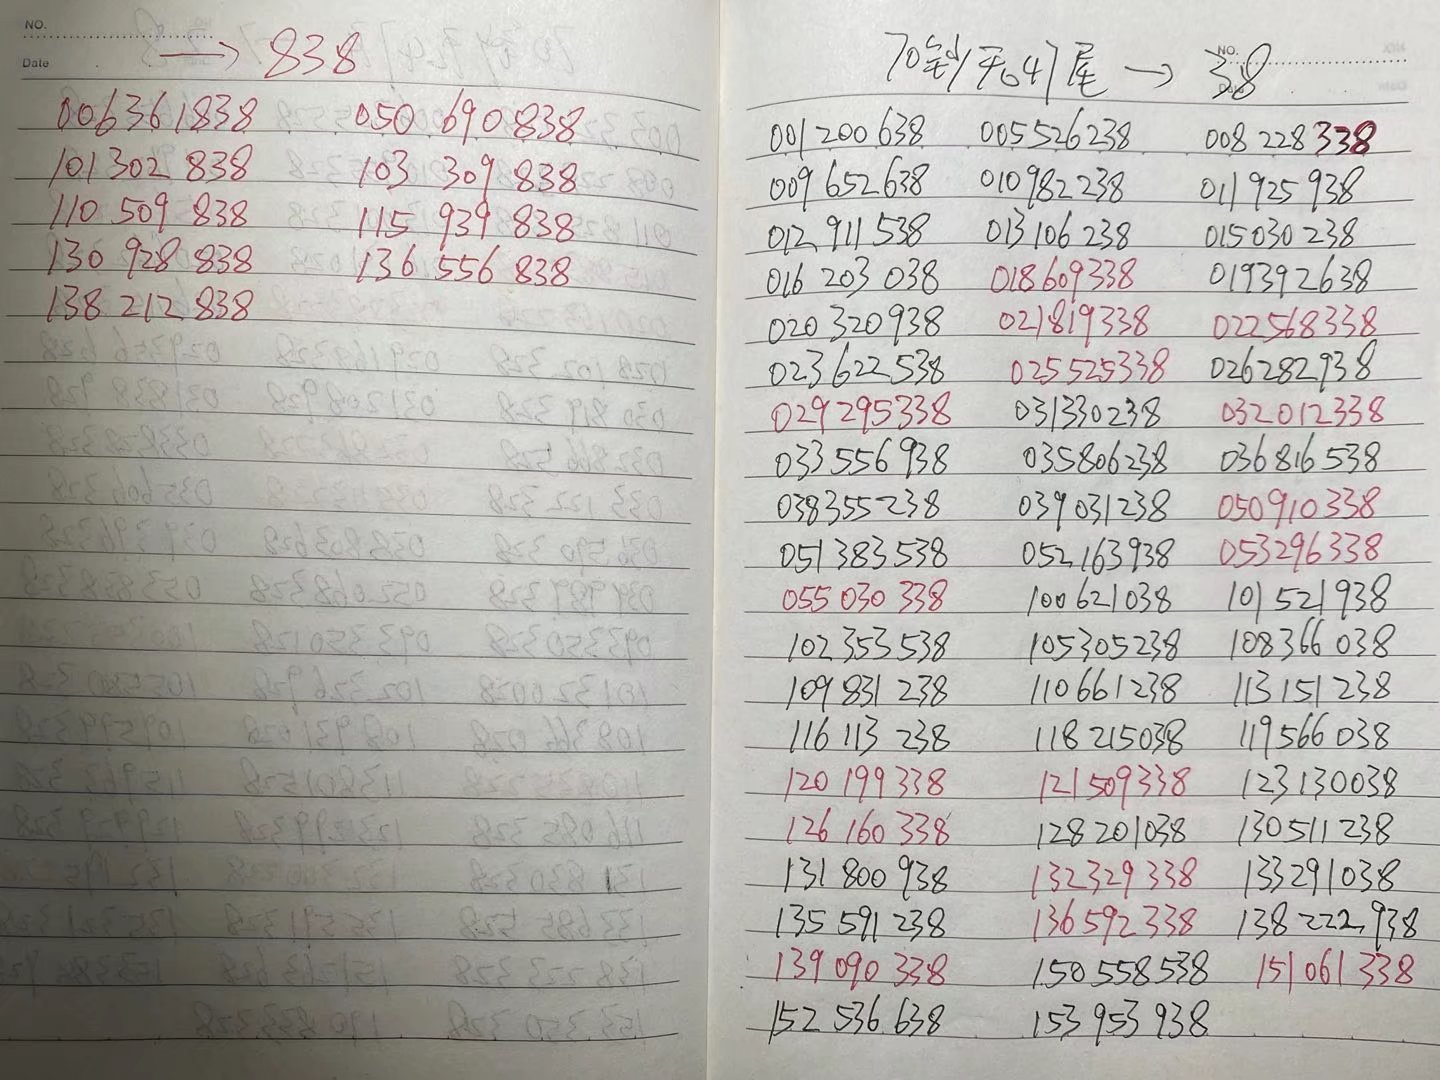 NO.
Date
→ 838
006361838 050 690 838
101302 838 103 309 838
110 509 838 115 939 838
130 928 838 136 556 838
138 212 838
NO.
70钞无47尾 → 38
001200638 005526238 008 228338
009652638 010982238 011925938
012911538 013106238 015030238
016 203 038 018609338 019392638
020 320938 021819338 022568338
023622538 025525338 026282938
029295338 031330238 032012338
033556938 035806238 036816538
038355238 039031238 050910338
051383538 052163938 053296338
055 030 338 100621038 101521938
102353538 105305238 108366 038
109831 238 110661238 113151238
116113 238 118215038 119566038
120199338 121509338 123130038
126160338 128201038 130511238
131800938 132329338 133291038
135591238 136592338 138222938
139090338 150558538 151061338
152536638 153953938